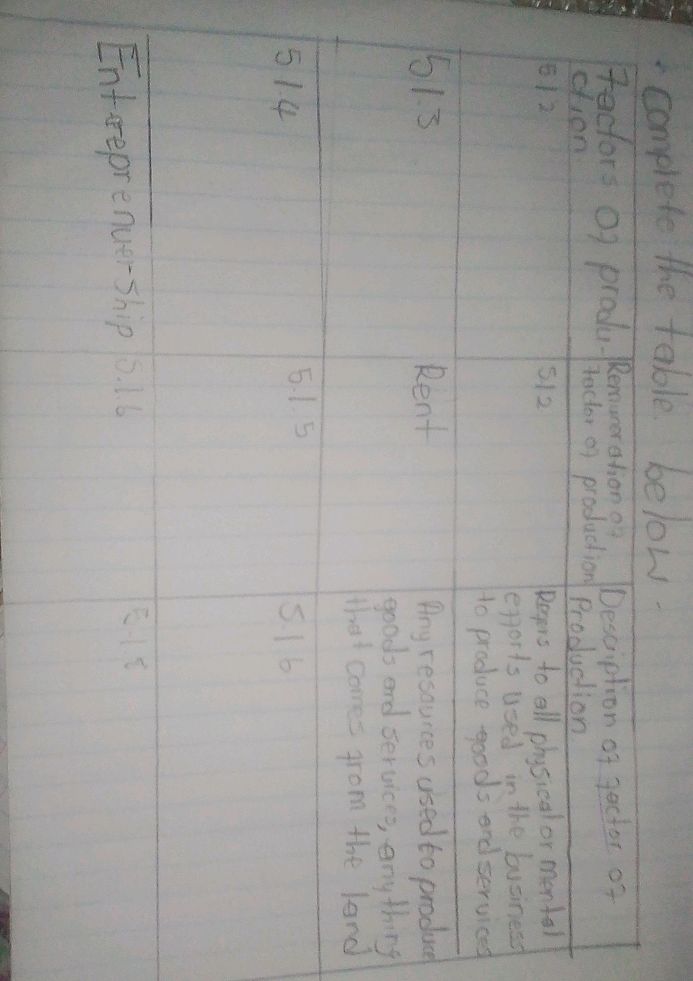 • Complete the table below.
Factors of produ-
ction
Remuneration of
factor of production
Description of factor of
Production
512
512
Refers to all physical or mental
efforts used in the business
to produce goods and services
51.3
Rent
Any resources used to produce
goods and services, anything
that comes from the land
51.4
5.1.5
5.16
Entreprenuership
5.16
5.18